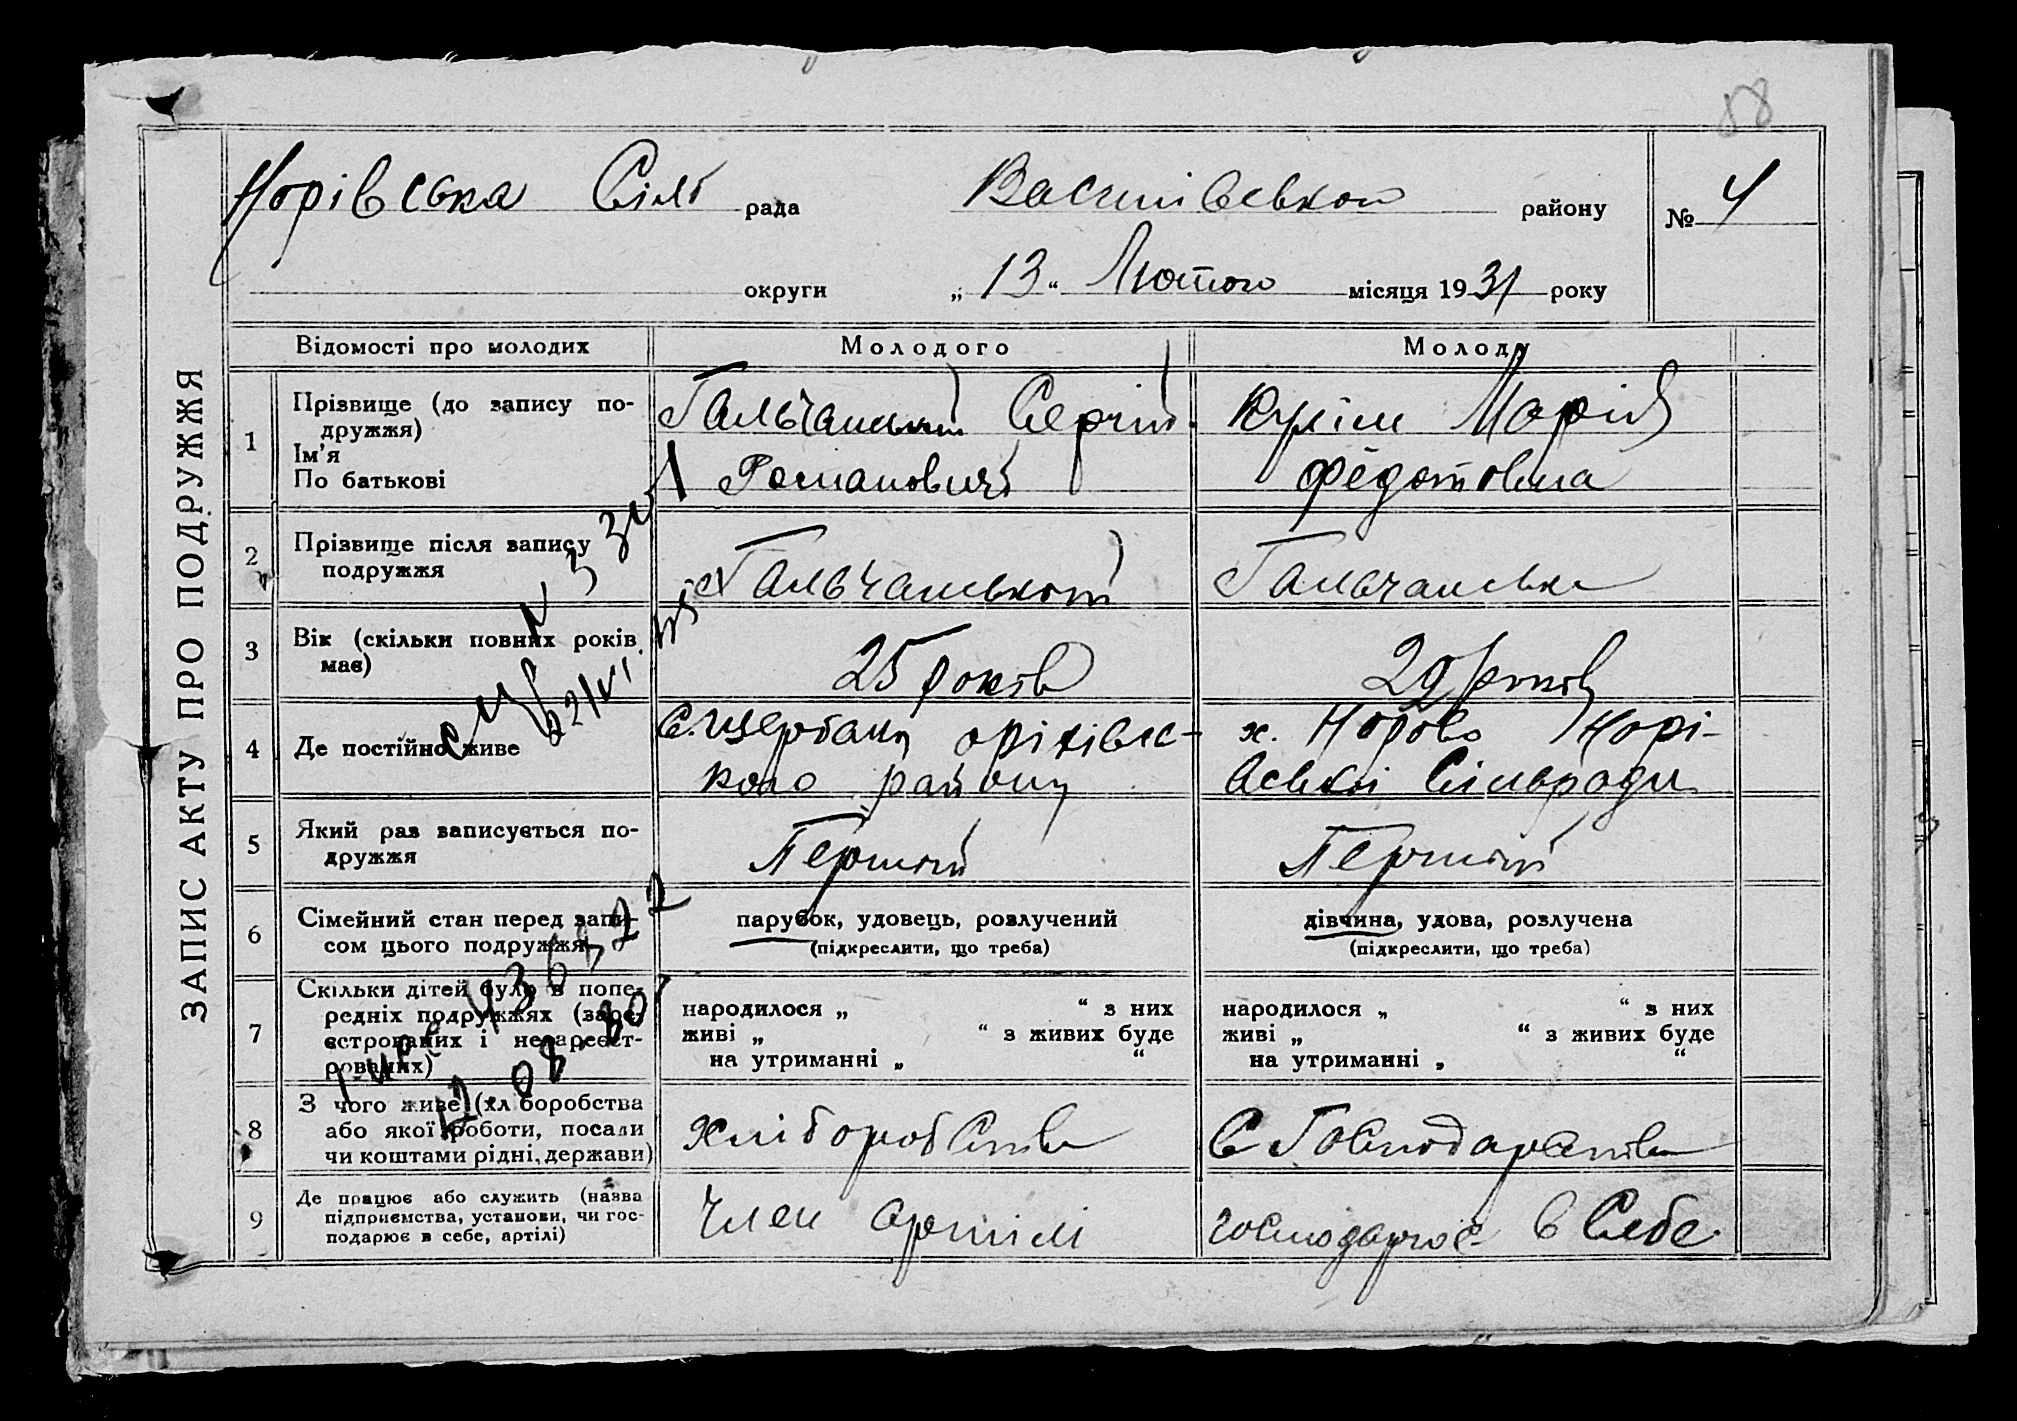 88
Норівська Сіль рада Василівського району № 4
округи „ 13 “ Лютого місяця 1931 року
ЗАПИС АКТУ ПРО ПОДРУЖЖЯ
Відомості про молодих Молодого Молоду
1 Прізвище (до запису по-
дружжя)
Ім'я
По батькові
Гальчанський Сергій
Романович
Марія
Федотовна
2 Прізвище після запису
подружжя
Гальчанський Гальчанська
3 Вік (скільки повних років
має)
25 років 29 років
4 Де постійно живе
с. Щербаки оріхівсь-
кого району
х. Норово Норі-
вської Сільради
5 Який раз записується по-
дружжя
Перший Перший
6 Сімейний стан перед запи-
сом цього подружжя
парубок, удовець, розлучений
(підкреслити, що треба)
дівчина, удова, розлучена
(підкреслити, що треба)
7 Скільки дітей було в попе-
редніх подружжях (заре-
єстрованих і незареєст-
рованих)
народилося „ “ з них
живі „ “ з живих буде
на утриманні „ “
народилося „ “ з них
живі „ “ з живих буде
на утриманні „ “
8 З чого живе (хліборобства
або якої роботи, посади
чи коштами рідні, держави)
хліборобства
С Господарства
9 Де працює або служить (назва
підприємства, установи, чи гос-
подарює в себе, артілі)
Член артілі
господарює в себе